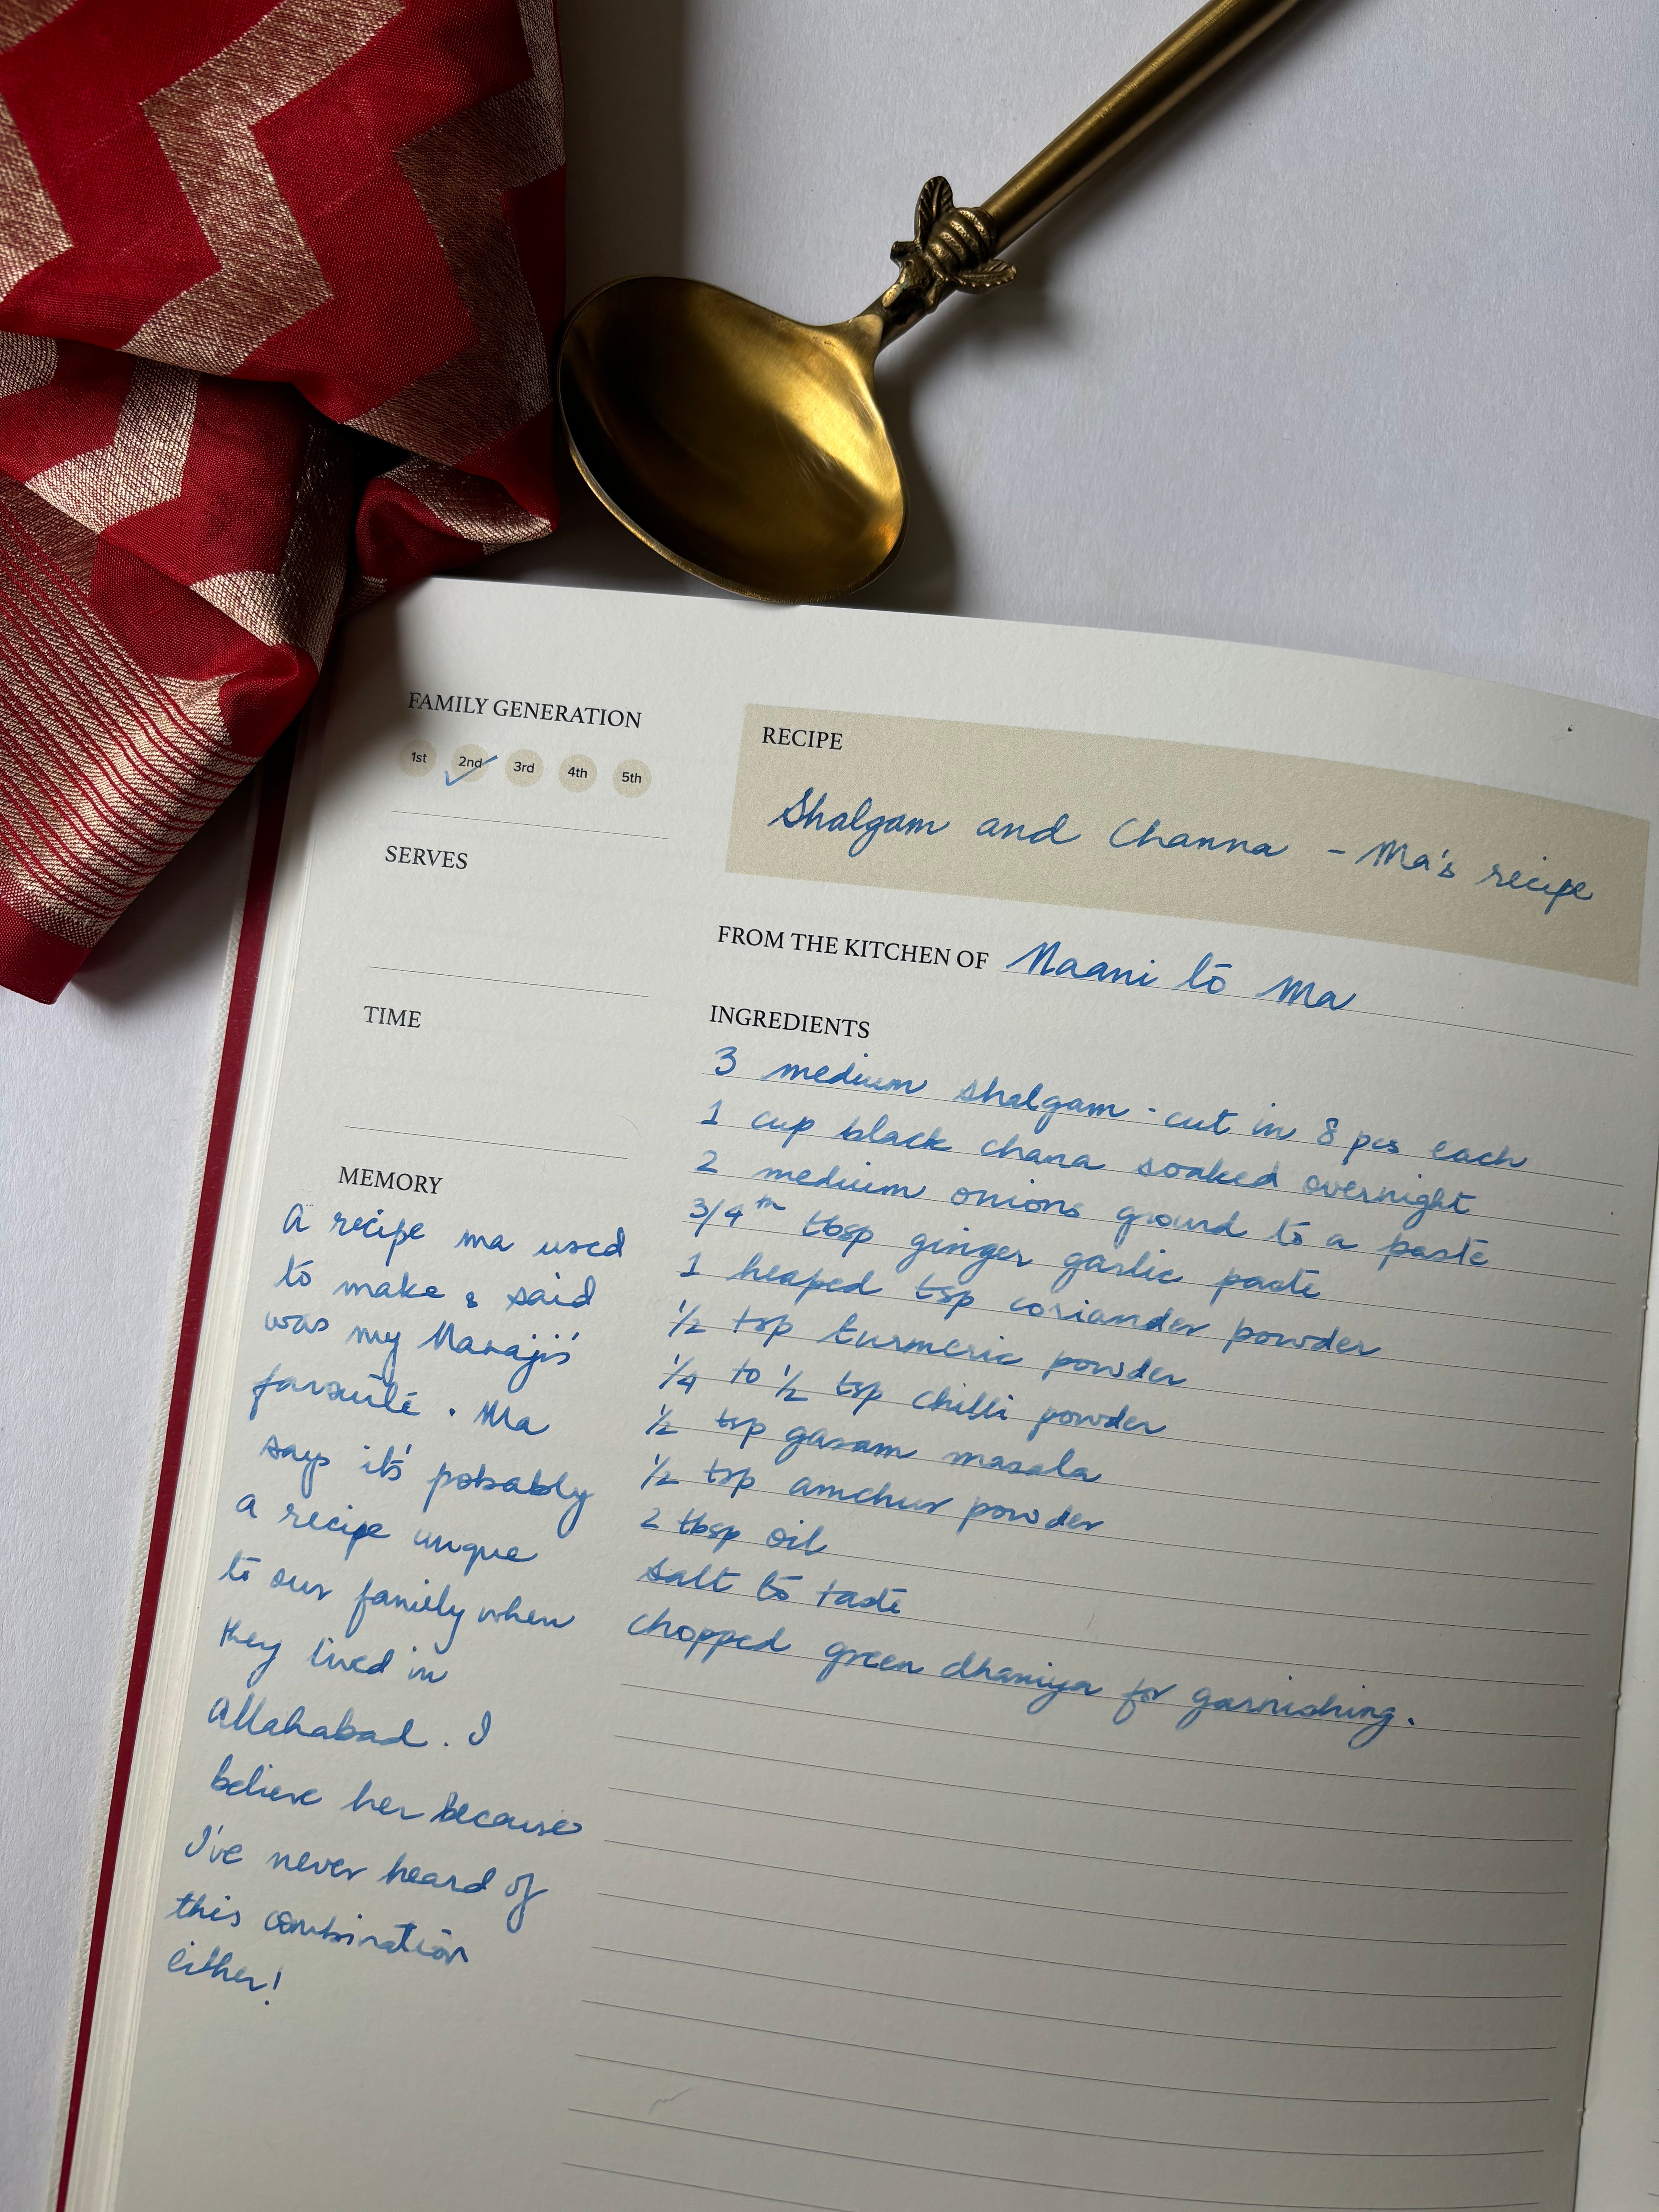 FAMILY GENERATION
1st 2nd 3rd 4th 5th
SERVES
TIME
MEMORY
A recipe ma used
to make & said
was my Nanaji's
favourite. Ma
says it's pobably
a recipe unque
to our family when
they lived in
Allahabad. I
believe her because
I've never heard of
this combination
either!
RECIPE
Shalgam and Channa - Ma's recipe
FROM THE KITCHEN OF Naani to Ma
INGREDIENTS
3 medium shalgam - cut in 8 pcs each
1 cup black chana soaked overnight
2 medium onions ground to a paste
3/4th tbsp ginger garlic paste
1 heaped tsp coriander powder
1/2 tsp turmeric powder
1/4 to 1/2 tsp chilli powder
1/2 tsp garam masala
1/2 tsp amchur powder
2 tbsp oil
salt to taste
chopped green dhaniya for garnishing.